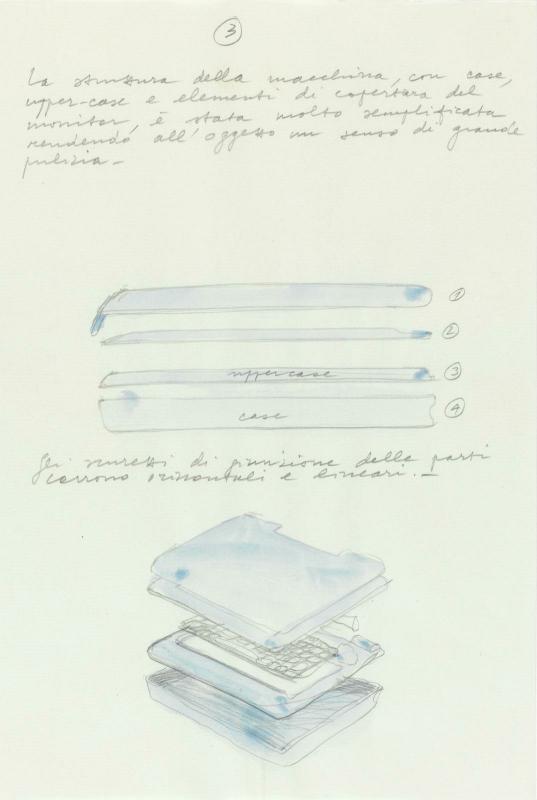 3
La struttura della macchina, con case,
upper-case e elementi di copertura del
monitor, è stata molto semplificata
rendendo all'oggetto un senso di grande
pulizia –
1
2
uppercase 3
case 4
Gli scuretti di giunzione delle parti
corrono orizzontali e lineari. –